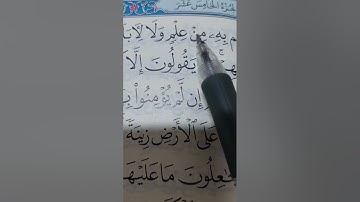 الجزء الخامس عشر
م بِهِۦ مِنْ عِلْمٍ وَلَا لِأٓبَ
هِمْ ۚ يَقُولُونَ إِلَّا
إِن لَّمْ يُؤْمِنُوا۟ بِ
عَلَى ٱلْأَرْضِ زِينَةً
جَٰعِلُونَ مَا عَلَيْهَ